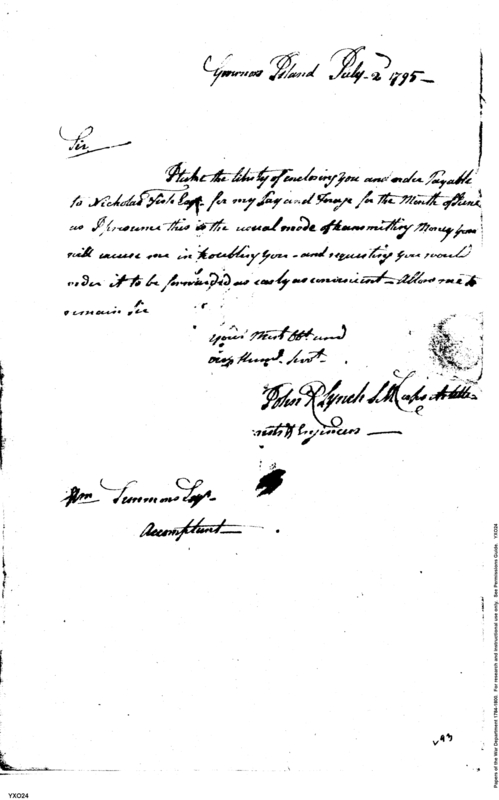 Governors Island July 2 1795 —
Sir
I take the liberty of enclosing you and order Payable
to Nicholas Fish Esqr for my Pay and Forage for the Month of June
as I presume this is the usual mode of transmitting Money you
will excuse me in troubling you - and requesting you would
order it to be forwarded as early as convenient - Allow me to
remain Sir
your Most Obt and
very Humbl. Servt.
John R Lynch S. M Corps Artille-
rists & Engineers —
Wm Simmons Esqr.
Accomptant —
93
Papers of the War Department 1784-1800. For research and instructional use only. See Permissions Guide. YXO24
YXO24